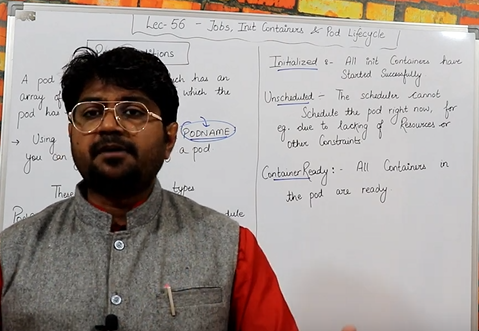 Lec-56 - Jobs, Init Containers & Pod Lifecycle
A pod has an
array of which the
pod has
→ Using PODNAME
you can a pod
These types
Initialized :- All Init Containers have
Started Successfully
Unscheduled - The scheduler cannot
Schedule the pod right now, for
eg. due to lacking of Resources or
other Constraints
Container Ready :- All Containers in
the pod are ready